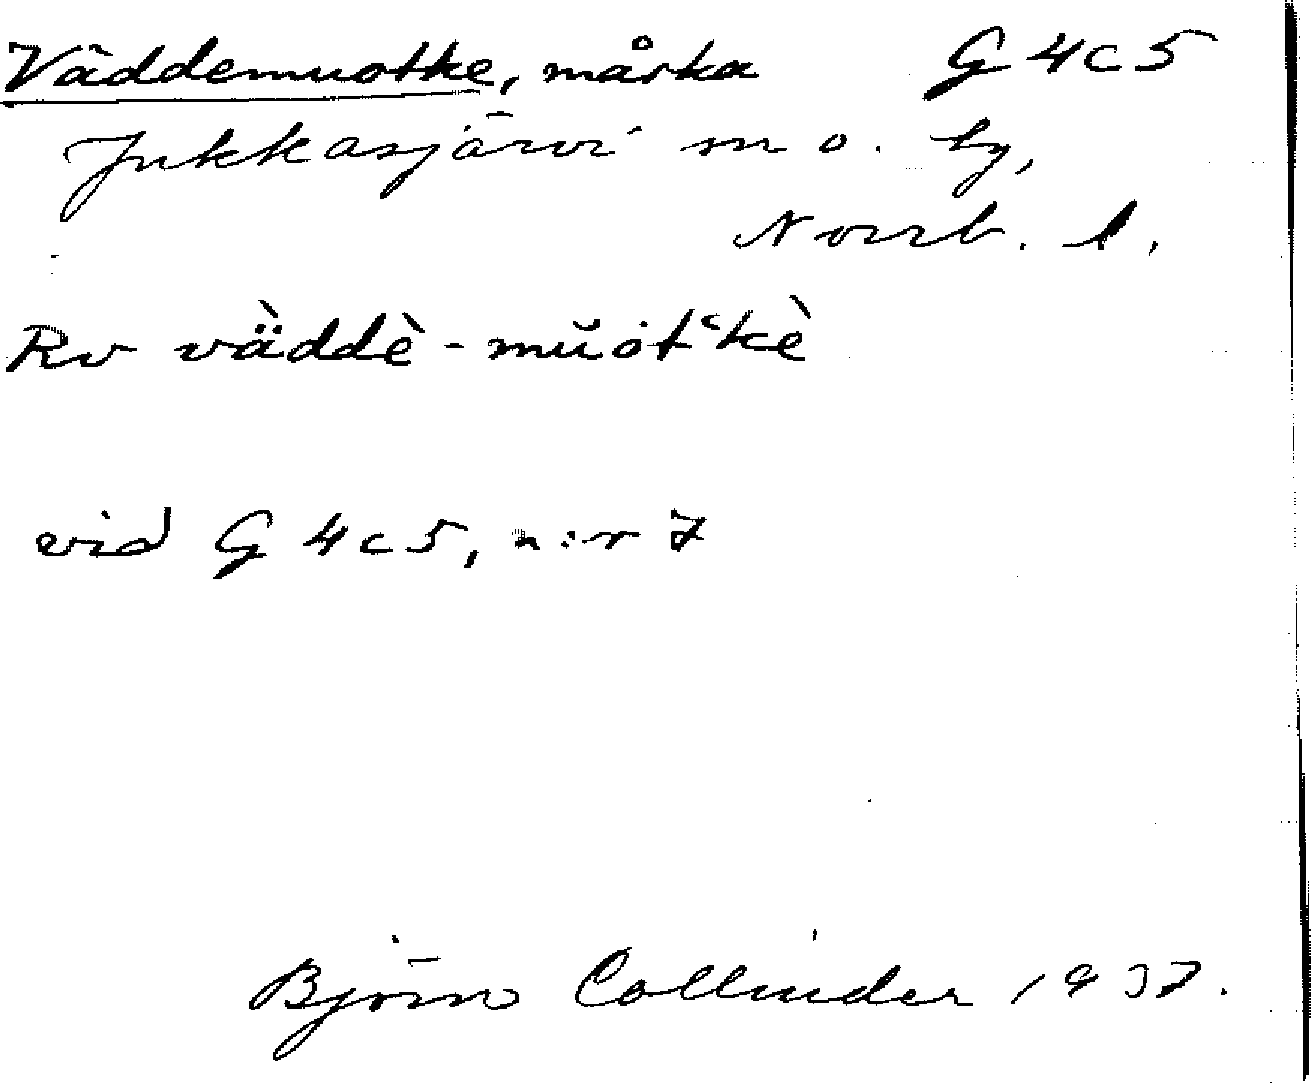 Väddemuotke, mårka G4c5
Jukkasjärvi sn o. by,
Norrb. l.
Rv vä̀ddè-mŭȯtʻkè
vid G4c5, n:r 7
Björn Collinder 1937.